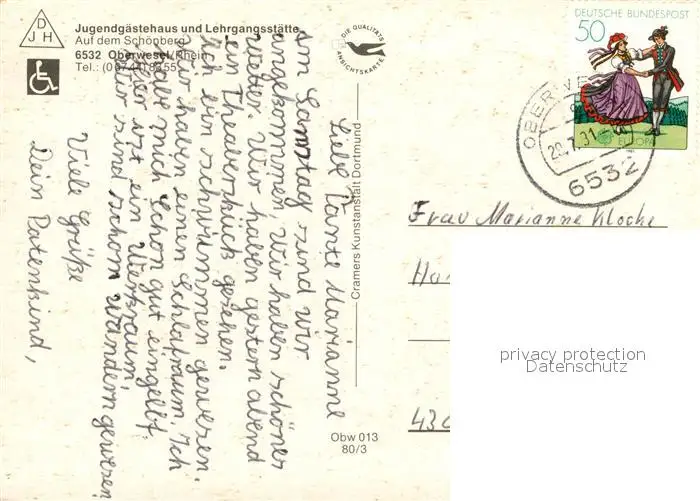 D
J H
Jugendgästehaus und Lehrgangsstätte
Auf dem Schönberg
6532 Oberwesel/Rhein
Tel.: (06744) 8355
DIE QUALITÄTS
ANSICHTSKARTE
Cramers Kunstanstalt Dortmund
Obw 013
80/3
Liebe Tante Marianne
Am Samstag sind wir
angekommen, Wir haben schönes
Wetter. Wir haben gestern abend
ein Theaterstück gesehen.
Ich bin schwimmen gewesen.
Wir haben einen Schlafraum. Ich
habe mich schon gut eingelebt.
Hier ist ein Werkraum,
Wir sind schon wandern gewesen
Viele Grüße
Dein Patenkind,
DEUTSCHE BUNDESPOST
50
EUROPA
6532
Frau Marianne Klocke
privacy protection
Datenschutz